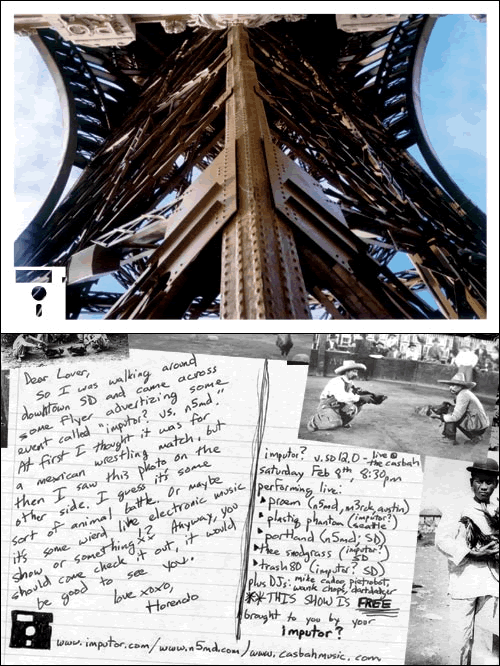 Dear Lover,
So I was walking around
downtown SD and came across
some flyer advertizing some
event called "imputor? vs. n5md."
At first I thought it was for
a mexican wrestling match, but
then I saw this photo on the
other side. I guess it's some
sort of animal battle. Or maybe
it's some wierd live electronic music
show or something?? Anyway, you
should come check it out, it would
be good to see you.
love xoxo,
Horendo
imputor? v.SD12.0 - live @
the casbah
saturday Feb 8th, 8:30pm
performing live:
proem (n5md, m3rck, austin)
plastiq phantom (imputor?
seattle)
portland (n5md, SD)
thee smdgrass (imputor?
SD)
trash80 (imputor? SD)
plus DJs: mike cadoo, pietrobot,
wank chops,
** THIS SHOW IS FREE
brought to you by your
imputor?
www.imputor.com/www.n5md.com/www.casbahmusic.com